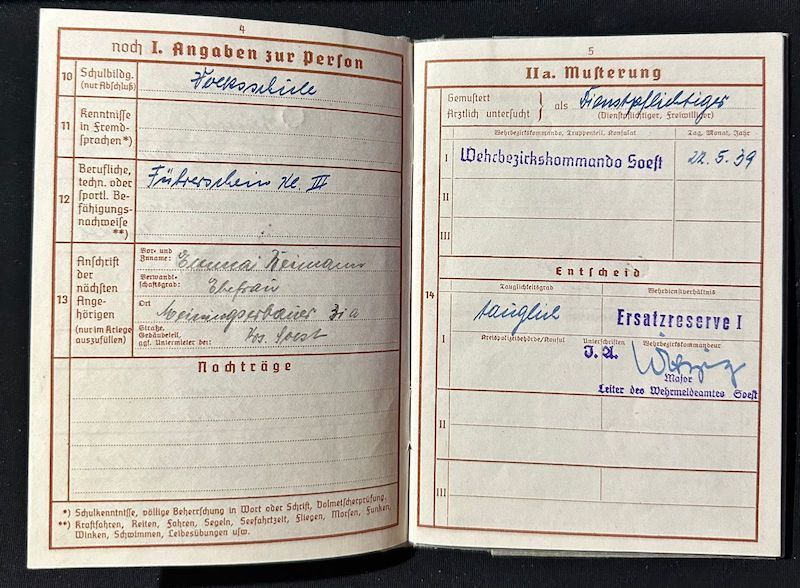 4
noch I. Angaben zur Person
10 Schulbildg. (nur Abschluß)
Volksschule
11 Kenntnisse in Fremdsprachen *)
12 Berufliche, techn. oder sportl. Befähigungsnachweise **)
Führerschein Kl. III
13 Anschrift der nächsten Angehörigen (nur im Kriege auszufüllen)
Vor- und Zuname: Emma Reimann
Verwandtschaftsgrad: Ehefrau
Ort Meiningserbauer 31a
Straße, Gebäudeteil, ggf. Untermieter bei: Krs. Soest
Nachträge
*) Schulkenntnisse, völlige Beherrschung in Wort oder Schrift, Dolmetscherprüfung.
**) Kraftfahren, Reiten, Fahren, Segeln, Seefahrtzeit, Fliegen, Morsen, Funken,
Winken, Schwimmen, Leibesübungen usw.
5
IIa. Musterung
Gemustert
Ärztlich untersucht } als Dienstpflichtiger
(Dienstpflichtiger, Freiwilliger)
Wehrbezirkskommando, Truppenteil, Konsulat Tag, Monat, Jahr
I Wehrbezirkskommando Soest 22.5.39
II
III
Entscheid
14
Tauglichkeitsgrad Wehrdienstverhältnis
I tauglich Ersatzreserve I
Kreispolizeibehörde/Konsul Unterschriften Wehrbezirkskommandeur
J. A.
Major
Leiter des Wehrmeldeamtes Soest
II
III